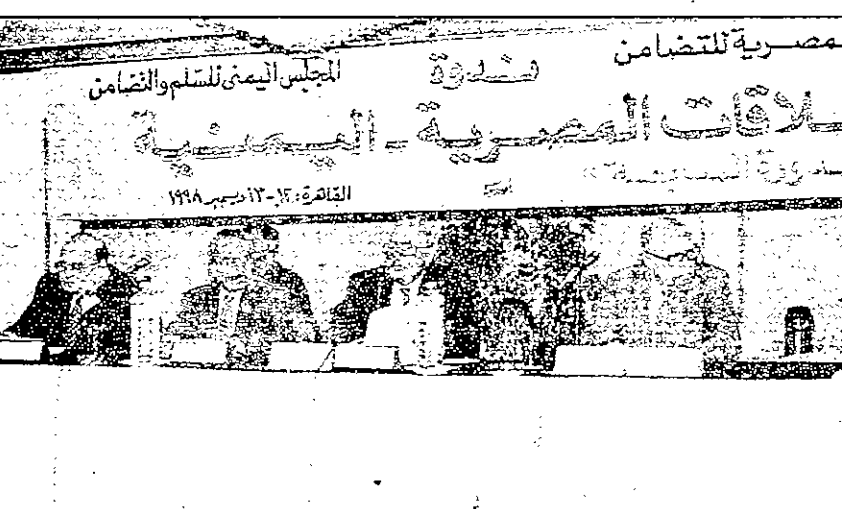 مصرية للتضامن
المجلس اليمنى للسلم والتضامن
ندوة
لاقات المصرية - اليمنية
القاهرة: ١٢-١٣ ديسمبر ١٩٩٨